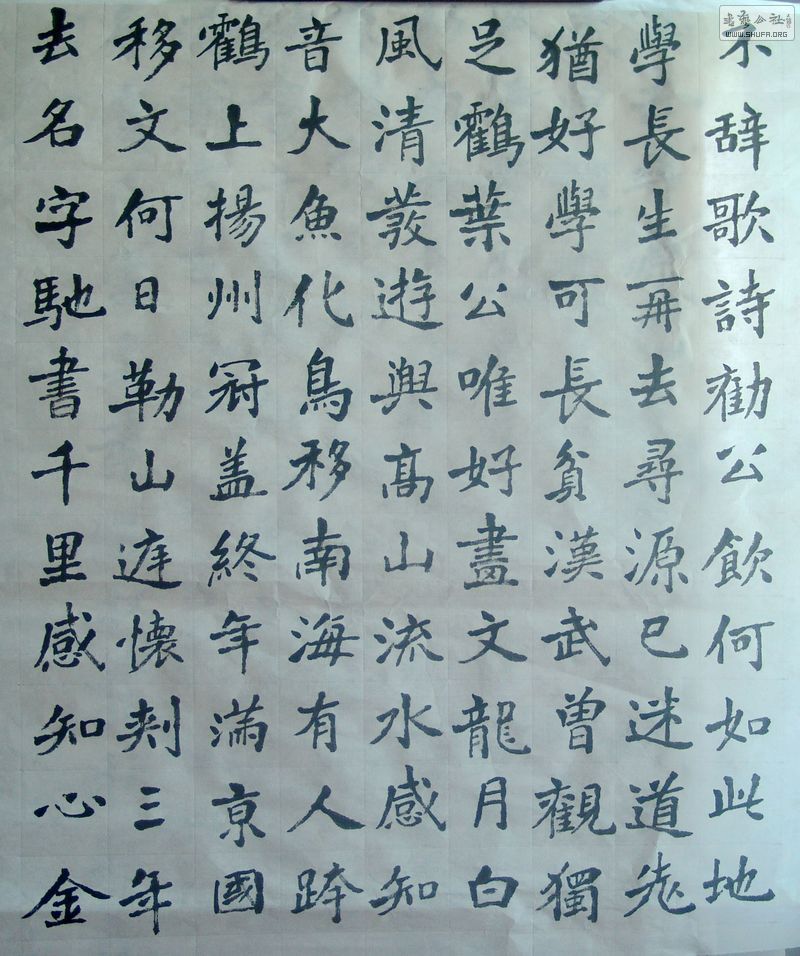 不辞歌詩勸公飲何如此地
學長生再去尋源已迷道先
猶好學可長貧漢武曾觀獨
足鸖葉公唯好畫文龍月白
風清發遊興髙山流水感知
音大魚化鳥移南海有人跨
鸖上揚州冠盖終年滿京國
移文何日勒山庭懷刺三年
去名字馳書千里感知心金
書藝公社
WWW.SHUFA.ORG